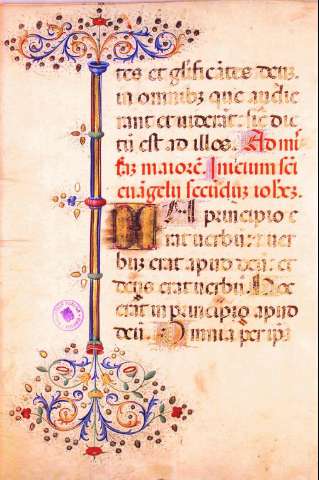 tes et glificātes deūz.
in omnibz que audie
rant et viderāt: sic dic
tū est ad illos. Ad mis
sāz maiorē. Inicium scī
euāgelij secūdūz iohēz.
IN principio e
rat uerbū: & uer
buz erat apud deū: et
deus erat uerbū. Hoc
erat in principio apud
deū. Omnia per ipz